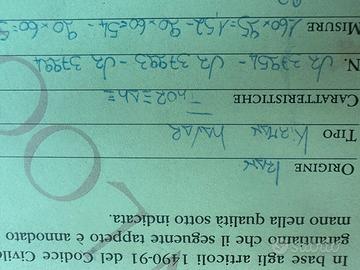 In base agli articoli 1490-91 del Codice Civile
garantiamo che il seguente tappeto è annodato
mano nella qualità sotto indicata.
ORIGINE IRAN
TIPO KIRMAN
CARATTERISTICHE
N.
MISURE 160x95=1,52 - 90x60=54 - 90x60=5